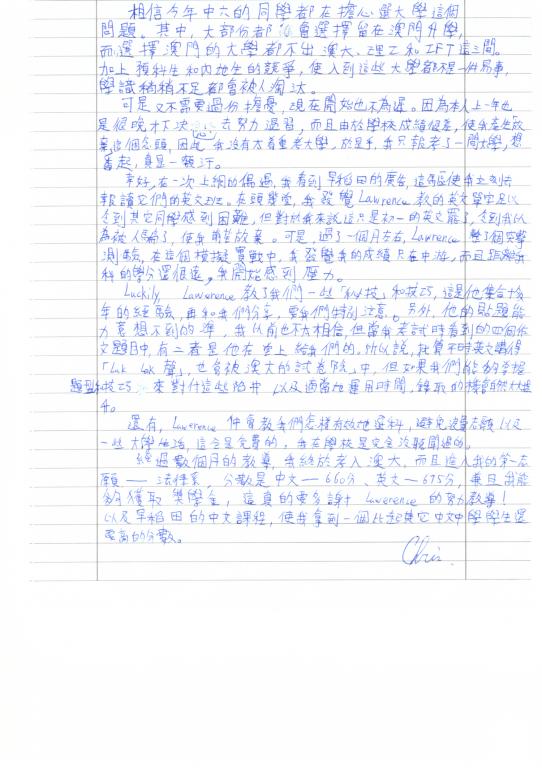 相信今年中六的同學都在擔心選大學這個
問題。其中，大部份都會選擇留在澳門升學，
而選擇澳門的大學都不出澳大、理工和IFT這三間。
加上預科生和內地生的競爭，使入到這些大學都不是一件易事，
學識稍稍不足都會被人淘汰。
可是又不需要過份擔憂，現在開始也不為遲。因為本人上一年也
是很晚才下決 去努力溫習，而且由於學校成績很差，使我產生放
棄這個念頭，因此 我沒有太着重考大學。於是乎，我只報考了一間大學，想
番起，真是一額汗。
幸好，在一次上網的偶遇，我看到早稻田的廣告，這 使我立刻去
報讀它們的英文班。在頭幾堂，我發覺Lawrence教的英文單字足以
令到其它同學感到困難，但對於我來說這只是初一的英文罷了，令到我以
為被人騙了，使我 放棄。可是，過了一個月左右，Lawrence 整了個突擊
測驗，在這個模擬實戰中，我發覺我的成績只在中游，而且
科的學分還很遠，我開始感到壓力。
Luckily, Lawerence 教了我們一些「秘技」和技巧，這是他集合十多
年的經驗，再和我們分享，要我們特別注意。另外，他的貼題能
力意想不到的準，我以前也不太相信，但當我考試時看到的四個作
文題目中，有二者是他在堂上給我們的。所以說，就算平時英文講得
「Lak Lak 聲」，也會被澳大的試卷 中，但如果我們能夠掌握
題型和技巧 來對付這些陷井 以及適當地運用時間，錄取的機會自然大

還有，Lawerence 仲會教我們怎樣有效地選科，避免浪費志願 以及
一些大學生活，這全是免費的。我在學校是完全沒聽聞過的。
經過數個月的教導，我終於考入澳大，而且進入我的第一志
願——法律系，分數是中文—660分、英文—675分，兼且能
夠獲取獎學金，這真的要多謝 Lawerence 的努力教導！
以及早稻田的中文課程，使我拿到一個比起其它中文中學學生還
要高的分數。
Chris.